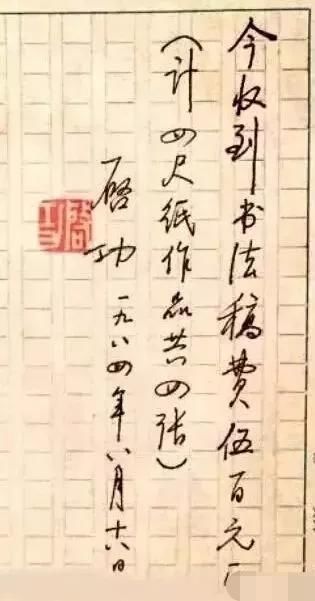 今收到书法稿费伍百元
（计四尺纸作品共四张）
启功 一九八四年八月十六日
启功